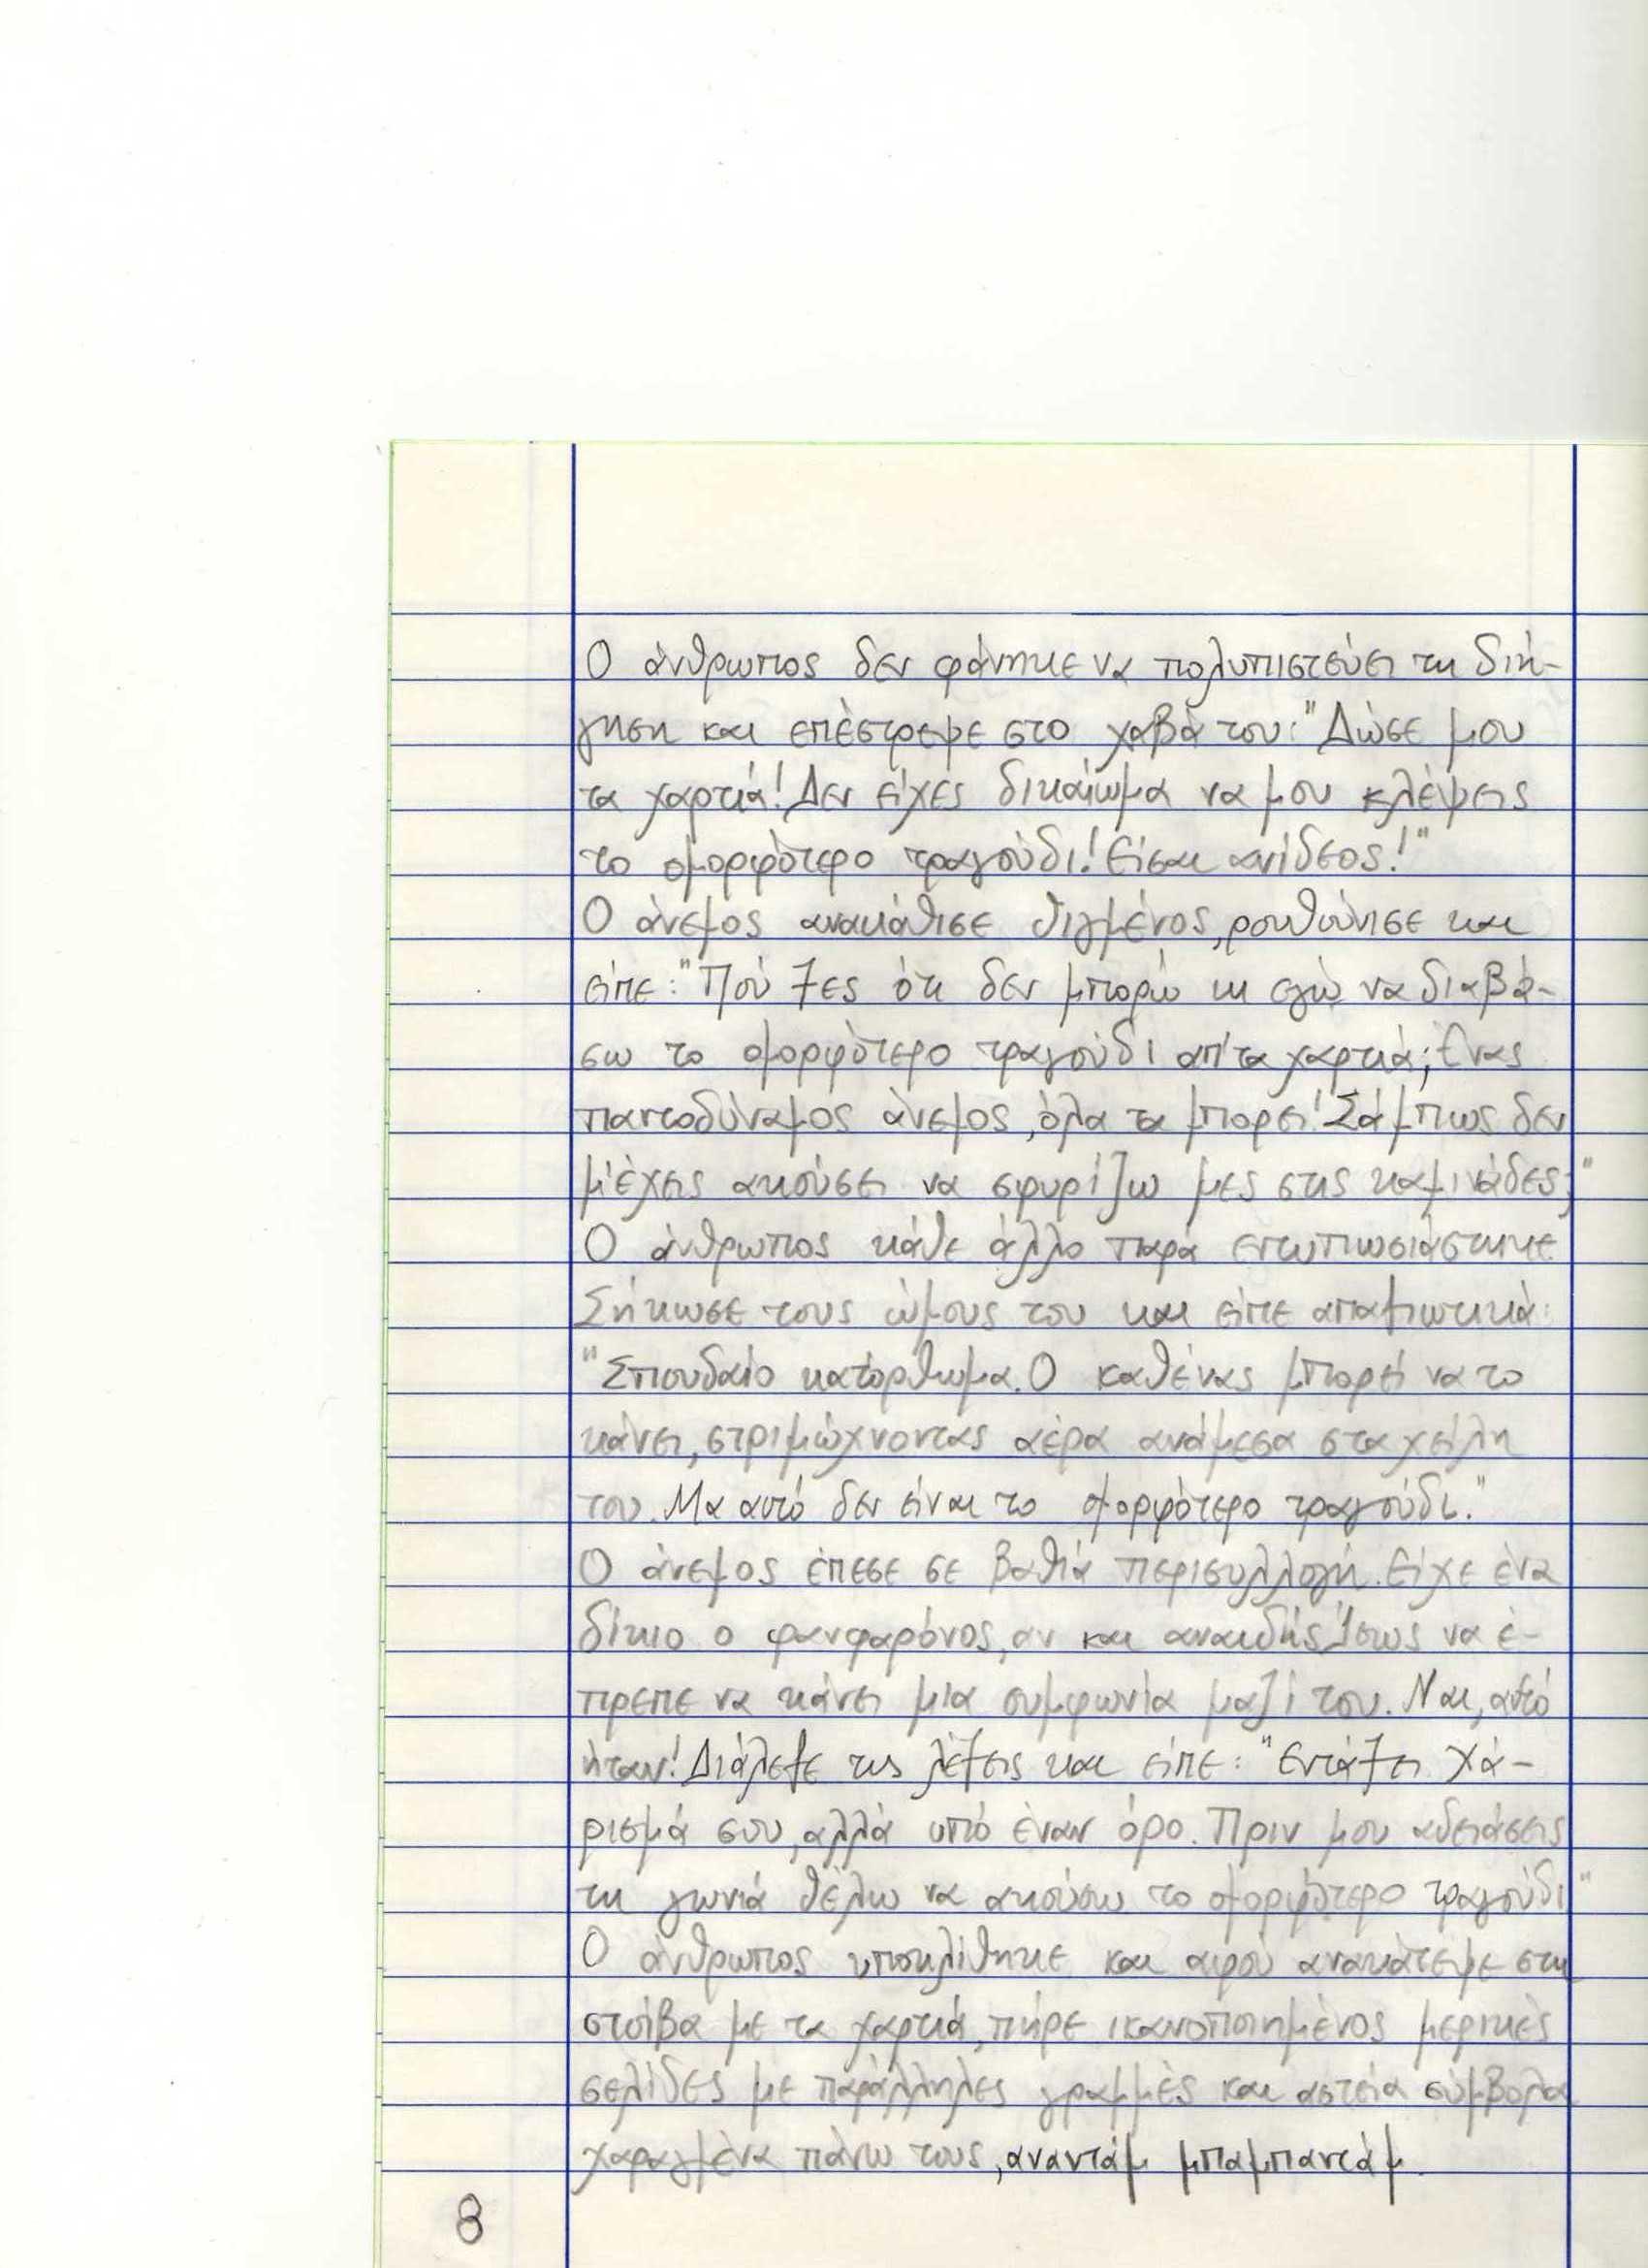 Ο άνθρωπος δεν φάνηκε να πολυπιστεύει τη διή-
γηση και επέστρεψε στο χαβά του: "Δώσε μου
τα χαρτιά! Δεν είχες δικαίωμα να μου κλέψεις
το ομορφότερο τραγούδι! Είσαι ανίδεος!"
Ο άνεμος ανακάθισε θιγμένος, ρουθούνισε και
είπε: "Πού ξες ότι δεν μπορώ κι εγώ να διαβά-
σω το ομορφότερο τραγούδι απ' τα χαρτιά; Ένας
παντοδύναμος άνεμος, όλα τα μπορεί! Σάμπως δεν
μ' έχεις ακούσει να σφυρίζω μες στις καμινάδες;"
Ο άνθρωπος κάθε άλλο παρά εντυπωσιάστηκε.
Σήκωσε τους ώμους του και είπε απαξιωτικά:
"Σπουδαίο κατόρθωμα. Ο καθένας μπορεί να το
κάνει, στριμώχνοντας αέρα ανάμεσα στα χείλη
του. Μα αυτό δεν είναι το ομορφότερο τραγούδι."
Ο άνεμος έπεσε σε βαθιά περισυλλογή. Είχε ένα
δίκιο ο φανφαρόνος, αν και αναιδής. Ίσως να έ-
πρεπε να κάνει μια συμφωνία μαζί του. Ναι, αυτό
ήταν! Διάλεξε τις λέξεις και είπε: "Εντάξει. Χά-
ρισμά σου, αλλά υπό έναν όρο. Πριν μου αδειάσεις
τη γωνιά θέλω να ακούσω το ομορφότερο τραγούδι"
Ο άνθρωπος υποκλίθηκε και αφού ανακάτεψε στη
στοίβα με τα χαρτιά, πήρε ικανοποιημένος μερικές
σελίδες με παράλληλες γραμμές και αστεία σύμβολα
χαραγμένα πάνω τους, αναντάμ μπαμπαντάμ.
8